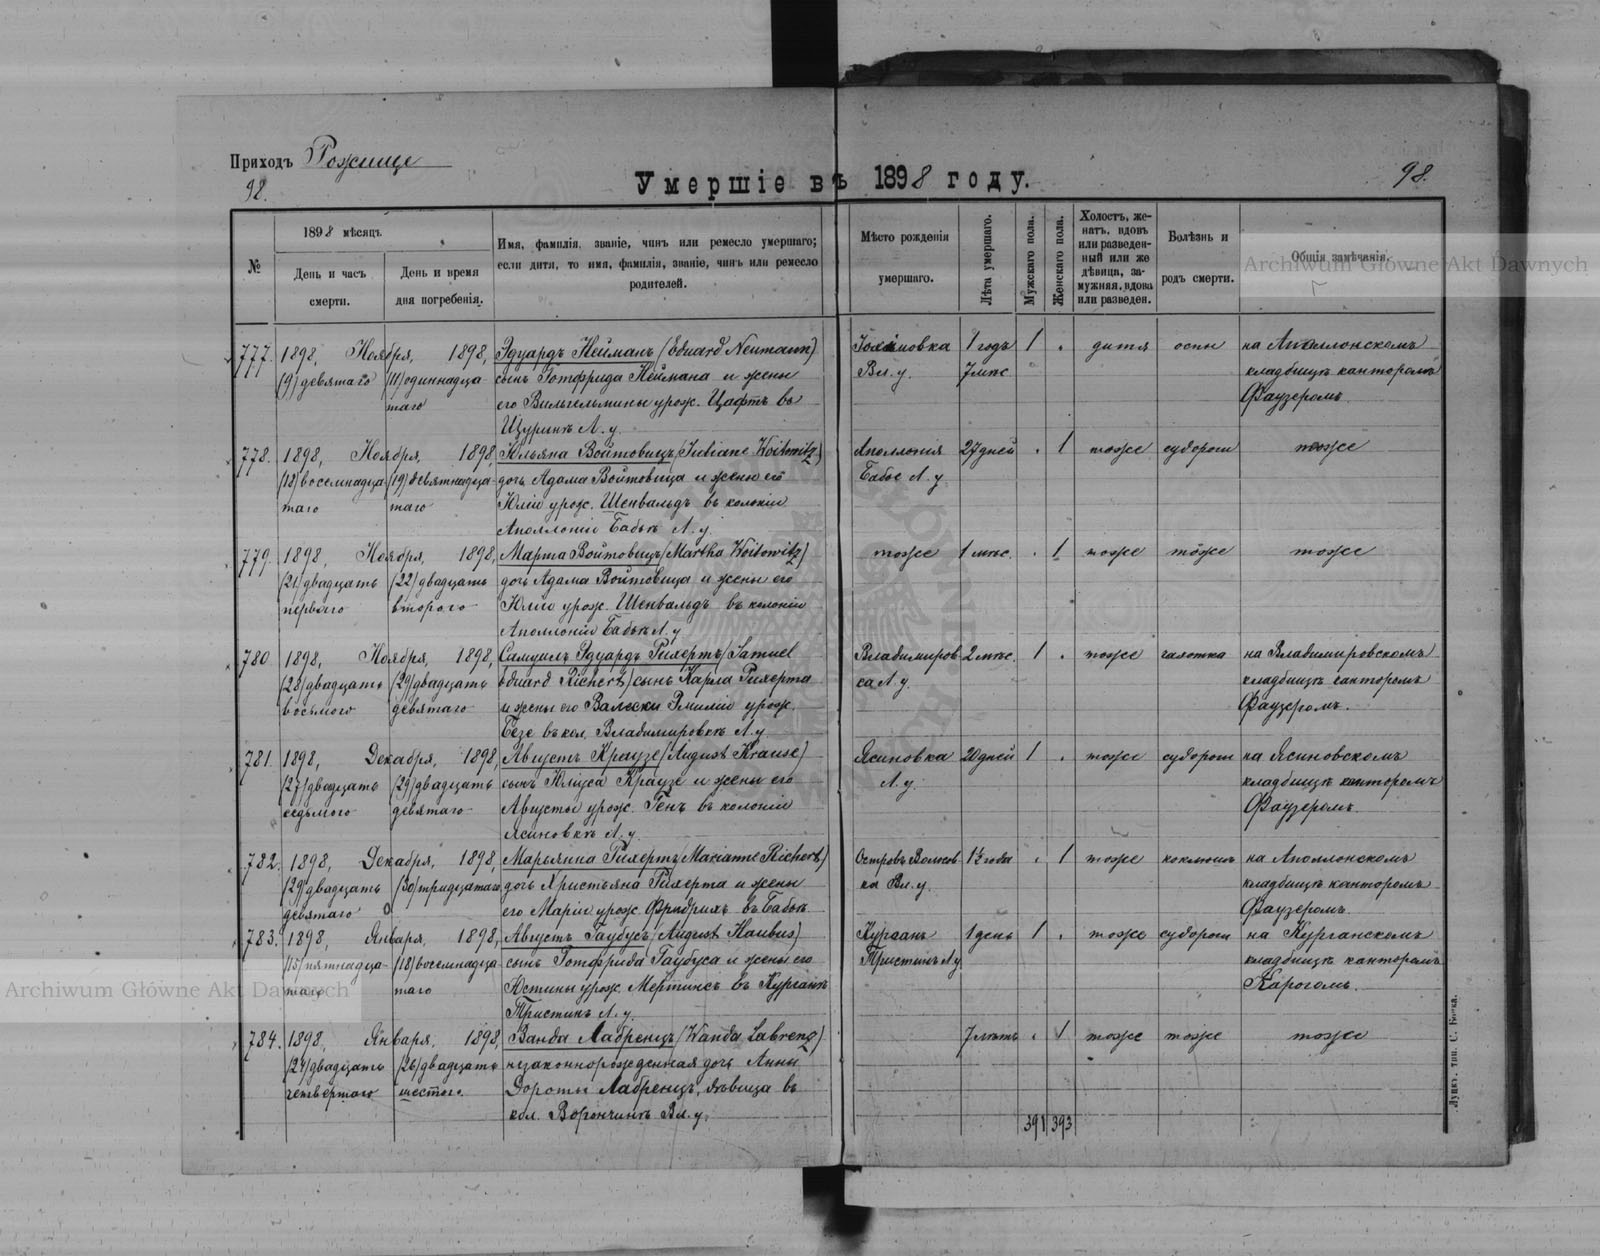 Приходъ Рожище
92.
Умершіе въ 1898 году.
98.
№
1898 мѣсяцъ
День и часъ смерти.
День и время дня погребенія.
Имя, фамилія, званіе, чинъ или ремесло умершаго;
если дитя, то имя, фамилія, званіе, чинъ или ремесло
родителей.
Мѣсто рожденія
умершаго.
Лѣта умершаго.
Мужскаго пола.
Женскаго пола.
Холостъ, же-
натъ, вдовъ
или разведен-
ный или же
дѣвица, за-
мужняя, вдова
или разведен.
Болѣзнь и
родъ смерти.
Общія замѣчанія.
Archiwum Główne Akt Dawnych
777. 1898, Ноября, 1898, Эдуардъ Нейманъ (Eduard Neumann) 1 годъ 1 . дитя оспы на Аполлонскомъ
(9) девятаго (11) одиннадца- сынъ Готфрида Неймана и жены Вл. у. 7 мѣс. кладбищѣ канторомъ
таго его Вильгельмины урож. Цафтъ въ Фаузеромъ.
Щуринѣ Л. у.
778. 1898, Ноября, 1898, Юльяна Войтовицъ (Juliane Woitowitz) Аполлонія 27 дней . 1 тоже судороги тоже
(18) восемнадца- (19) девятнадца- дочь Адама Войтовица и жены его Бабье Л. у.
таго таго Юліи урож. Шенвальдъ въ колоніи
Аполлоніи Бабьѣ Л. у.
779. 1898, Ноября, 1898, Марта Войтовицъ (Martha Woitowitz) тоже 1 мѣс. . 1 тоже тоже тоже
(21) двадцать (22) двадцать дочь Адама Войтовица и жены его
перваго второго Юліи урож. Шенвальдъ въ колоніи
Аполлоніи Бабьѣ Л. у.
780. 1898, Ноября, 1898, Самуилъ Эдуардъ Рихертъ (Samuel Владимиров- 2 мѣс. 1 . тоже чахотка на Владимировскомъ
(28) двадцать (29) двадцать Eduard Richert) сынъ Карла Рихерта ка Л. у. кладбищѣ канторомъ
восьмого девятаго и жены его Валески Эмиліи урож. Фаузеромъ.
Безе въ кол. Владимировкѣ Л. у.
781. 1898, Декабря, 1898, Августъ Краузе (August Krause) Ясиновка 20 дней 1 . тоже судороги на Ясиновскомъ
(27) двадцать (29) двадцать сынъ Юліуса Краузе и жены его Л. у. кладбищѣ канторомъ
седьмого девятаго Августы урож. Генъ въ колоніи Фаузеромъ.
Ясиновкѣ Л. у.
782. 1898, Декабря, 1898, Марьянна Рихертъ (Marianne Richert) Островъ 1½ года . 1 тоже коклюшъ на Аполлонскомъ
(29) двадцать (30) тридцатаго дочь Христьяна Рихерта и жены ка Вл. у. кладбищѣ канторомъ
девятаго его Маріи урож. Фридрихъ въ Бабьѣ Фаузеромъ.
783. 1898, Января, 1898, Августъ Гаубусъ (August Haubus) Курганъ 1 день 1 . тоже судороги на Курганскомъ
(15) пятнадца- (18) восемнадца- сынъ Готфрида Гаубуса и жены его Тристинъ Л. у. кладбищѣ канторомъ
таго таго Юстины урож. Мертинсъ въ Курганѣ
Тристинѣ Л. у.
784. 1898, Января, 1898, Ванда Лабренцъ (Wanda Labrenz) 7 лѣтъ . 1 тоже тоже тоже
(24) двадцать (26) двадцать незаконнорожденная дочь Анны
четвертаго шестого. Дороты Лабренцъ, дѣвица въ
кол. Ворончинѣ Вл. у.
391 393
Archiwum Główne Akt Dawnych
Луцкъ, тип. С. Бокса.